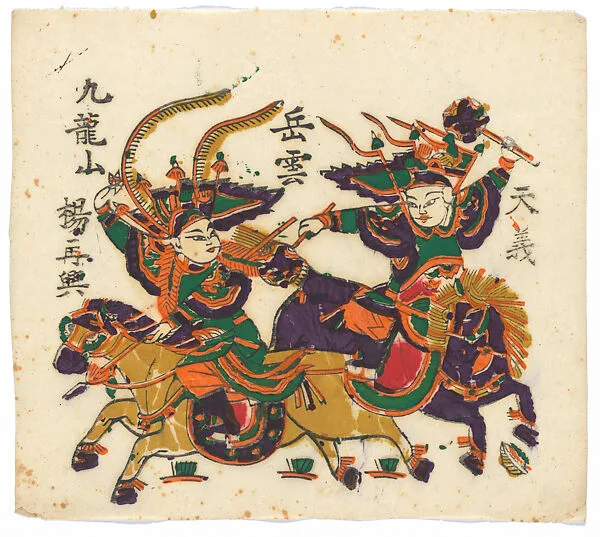 九龍山
楊再興
岳雲
天義